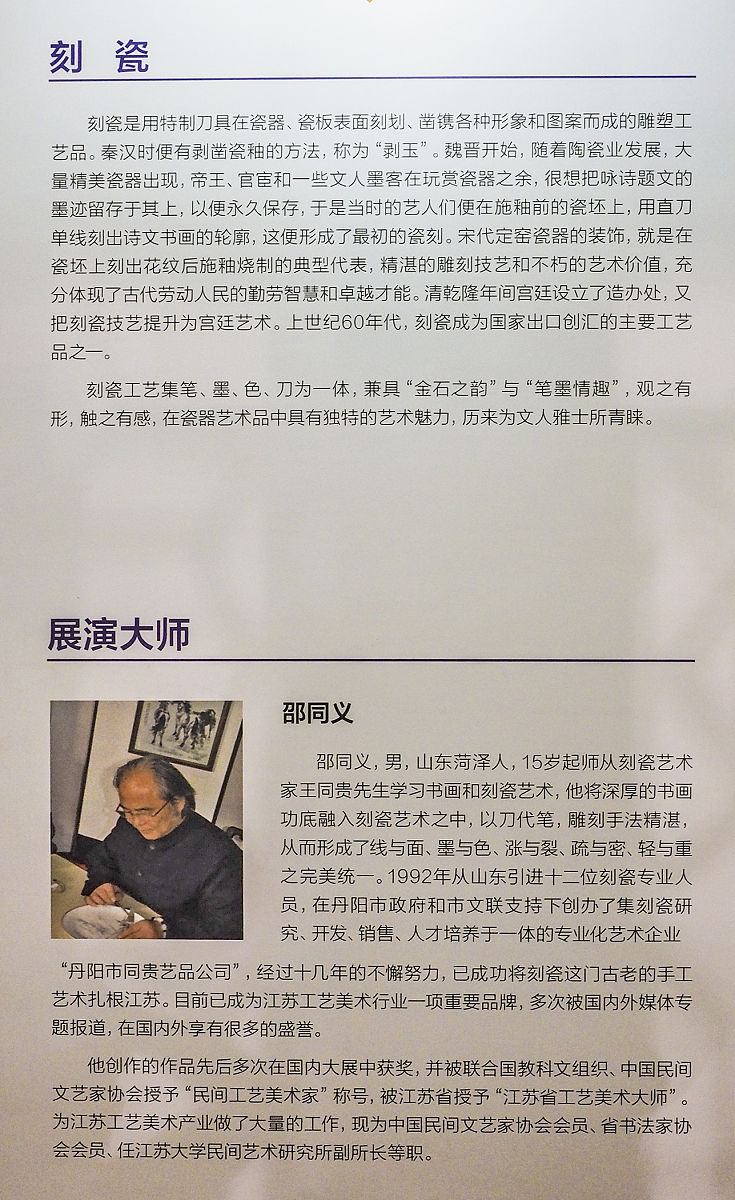 刻 瓷
刻瓷是用特制刀具在瓷器、瓷板表面刻划、凿镌各种形象和图案而成的雕塑工
艺品。秦汉时便有剥凿瓷釉的方法，称为“剥玉”。魏晋开始，随着陶瓷业发展，大
量精美瓷器出现，帝王、官宦和一些文人墨客在玩赏瓷器之余，很想把咏诗题文的
墨迹留存于其上，以便永久保存，于是当时的艺人们便在施釉前的瓷坯上，用直刀
单线刻出诗文书画的轮廓，这便形成了最初的瓷刻。宋代定窑瓷器的装饰，就是在
瓷坯上刻出花纹后施釉烧制的典型代表，精湛的雕刻技艺和不朽的艺术价值，充
分体现了古代劳动人民的勤劳智慧和卓越才能。清乾隆年间宫廷设立了造办处，又
把刻瓷技艺提升为宫廷艺术。上世纪60年代，刻瓷成为国家出口创汇的主要工艺
品之一。
刻瓷工艺集笔、墨、色、刀为一体，兼具“金石之韵”与“笔墨情趣”，观之有
形，触之有感，在瓷器艺术品中具有独特的艺术魅力，历来为文人雅士所青睐。
展演大师
邵同义
邵同义，男，山东菏泽人，15岁起师从刻瓷艺术
家王同贵先生学习书画和刻瓷艺术，他将深厚的书画
功底融入刻瓷艺术之中，以刀代笔，雕刻手法精湛，
从而形成了线与面、墨与色、涨与裂、疏与密、轻与重
之完美统一。1992年从山东引进十二位刻瓷专业人
员，在丹阳市政府和市文联支持下创办了集刻瓷研
究、开发、销售、人才培养于一体的专业化艺术企业
“丹阳市同贵艺品公司”，经过十几年的不懈努力，已成功将刻瓷这门古老的手工
艺术扎根江苏。目前已成为江苏工艺美术行业一项重要品牌，多次被国内外媒体专
题报道，在国内外享有很多的盛誉。
他创作的作品先后多次在国内大展中获奖，并被联合国教科文组织、中国民间
文艺家协会授予“民间工艺美术家”称号，被江苏省授予“江苏省工艺美术大师”。
为江苏工艺美术产业做了大量的工作，现为中国民间文艺家协会会员、省书法家协
会会员、任江苏大学民间艺术研究所副所长等职。